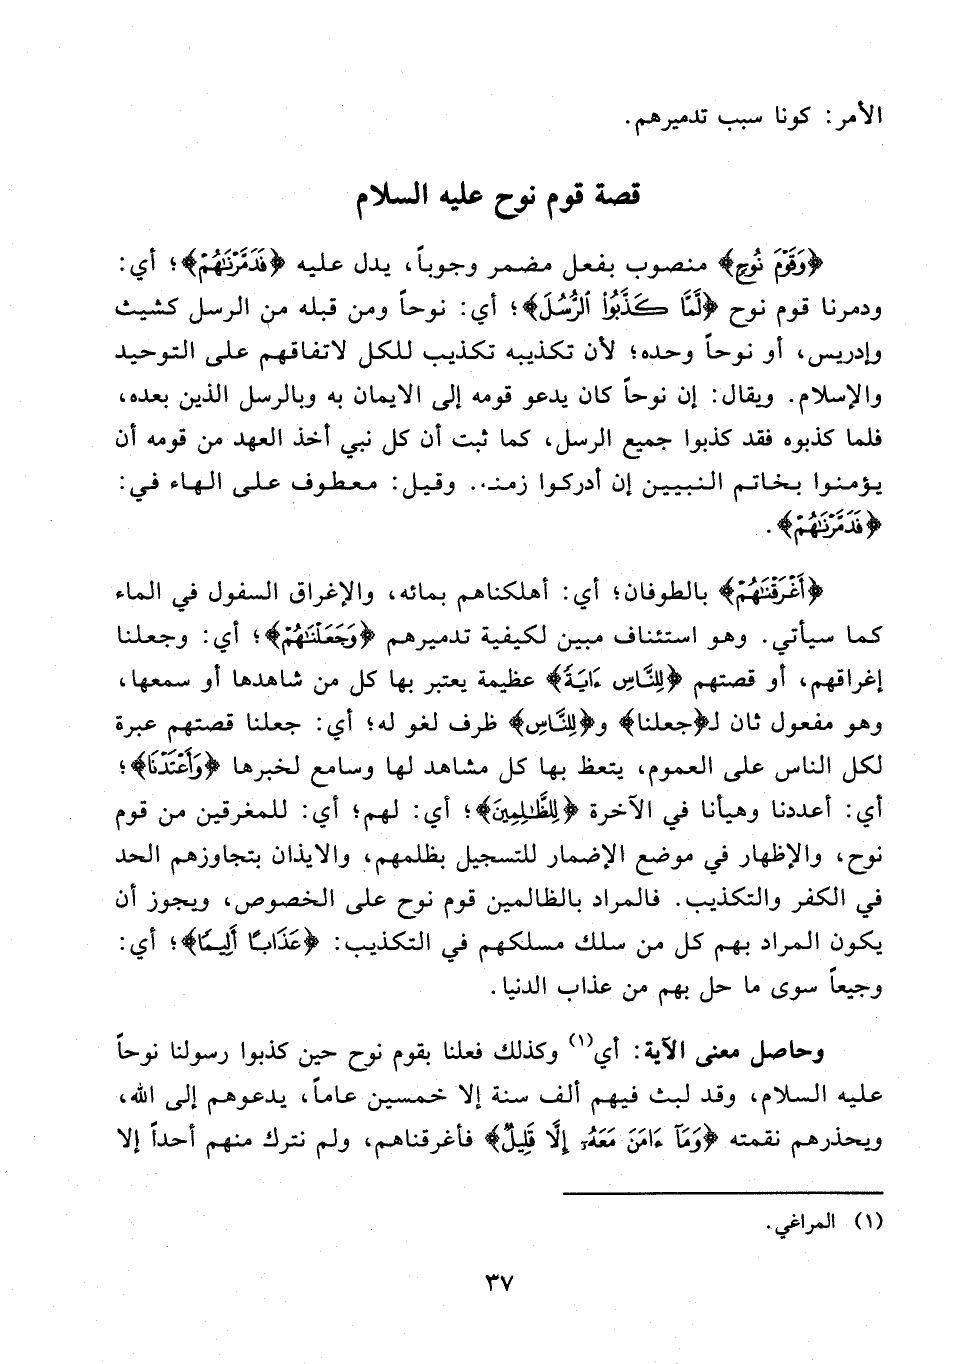 الأمر: كونا سبب تدميرهم.
قصة قوم نوح عليه السلام
﴿وَقَوْمَ نُوحٍ﴾ منصوب بفعل مضمر وجوباً، يدل عليه ﴿فَدَمَّرْنَٰهُمْ﴾؛ أي:
ودمرنا قوم نوح ﴿لَّمَّا كَذَّبُوا۟ ٱلرُّسُلَ﴾؛ أي: نوحاً ومن قبله من الرسل كشيث
وإدريس، أو نوحاً وحده؛ لأن تكذيبه تكذيب للكل لاتفاقهم على التوحيد
والإسلام. ويقال: إن نوحاً كان يدعو قومه إلى الايمان به وبالرسل الذين بعده،
فلما كذبوه فقد كذبوا جميع الرسل، كما ثبت أن كل نبي أخذ العهد من قومه أن
يؤمنوا بخاتم النبيين إن أدركوا زمنه. وقيل: معطوف على الهاء في:
﴿فَدَمَّرْنَٰهُمْ﴾.
﴿أَغْرَقْنَٰهُمْ﴾ بالطوفان؛ أي: أهلكناهم بمائه، والإغراق السفول في الماء
كما سيأتي. وهو استئناف مبين لكيفية تدميرهم ﴿وَجَعَلْنَٰهُمْ﴾؛ أي: وجعلنا
إغراقهم، أو قصتهم ﴿لِلنَّاسِ ءَايَةً﴾ عظيمة يعتبر بها كل من شاهدها أو سمعها،
وهو مفعول ثان لـ﴿جعلنا﴾ و﴿لِلنَّاسِ﴾ ظرف لغو له؛ أي: جعلنا قصتهم عبرة
لكل الناس على العموم، يتعظ بها كل مشاهد لها وسامع لخبرها ﴿وَأَعْتَدْنَا﴾؛
أي: أعددنا وهيأنا في الآخرة ﴿لِلظَّٰلِمِينَ﴾؛ أي: لهم؛ أي: للمغرقين من قوم
نوح، والإظهار في موضع الإضمار للتسجيل بظلمهم، والايذان بتجاوزهم الحد
في الكفر والتكذيب. فالمراد بالظالمين قوم نوح على الخصوص، ويجوز أن
يكون المراد بهم كل من سلك مسلكهم في التكذيب: ﴿عَذَابًا أَلِيمًا﴾؛ أي:
وجيعاً سوى ما حل بهم من عذاب الدنيا.
وحاصل معنى الآية: أي(١) وكذلك فعلنا بقوم نوح حين كذبوا رسولنا نوحاً
عليه السلام، وقد لبث فيهم ألف سنة إلا خمسين عاماً، يدعوهم إلى الله،
ويحذرهم نقمته ﴿وَمَآ ءَامَنَ مَعَهُۥٓ إِلَّا قَلِيلٌ﴾ فأغرقناهم، ولم نترك منهم أحداً إلا
(١) المراغي.
٣٧